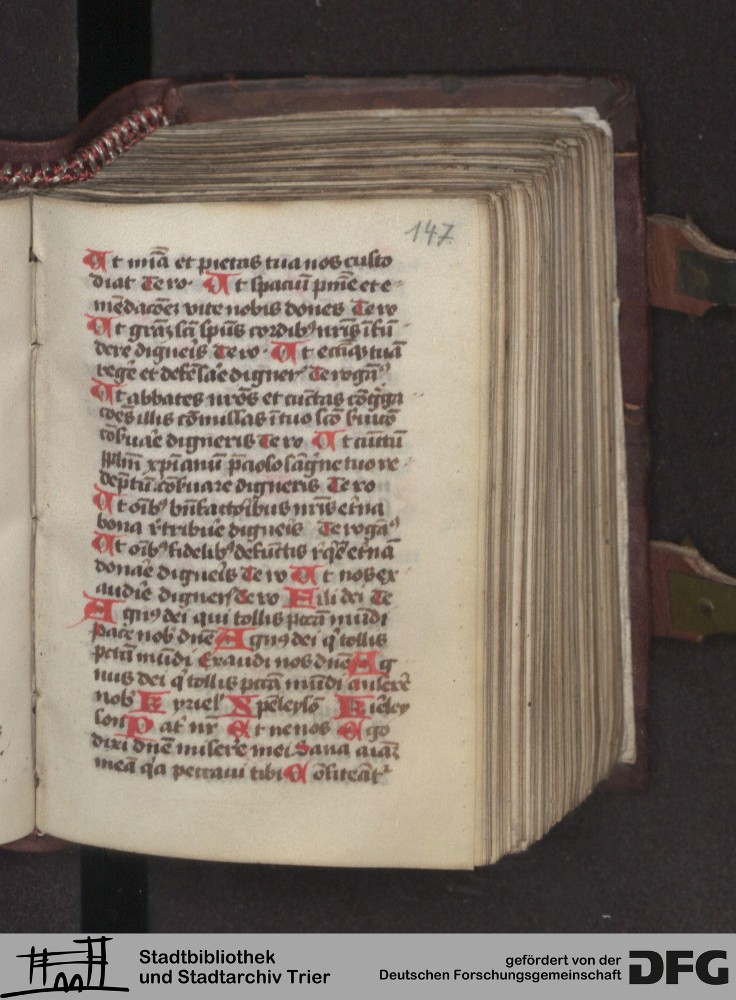 147
Ut mīa et pietas tua nos custo
diat Te ro· Ut spaciū pnīe et e
mēdacōeȝ vite nobis dones Te ro
Ut grāȝ scī spūs cordibꝫ nr̄is īfū
dere digneris Te ro· Ut eccīaȝ tuā
regē et defēsāe digner̄ Te rogaꝰ
Ut abbates nr̄os et cūctas cōgga
cōes illis cōmissas ī tuo scō ſuicō
cōſuāe digneris Te ro Ut cūctū
ppīm xpīanū p̄cioso sāgne tuo re
deptū cōſuare digneris Te ro
Ut oīb' bn̄factoribus nr̄is et'na
bona r̄tribuē digneis Te rogaꝰ
Ut oīb' fidelib' defūctis r̄qē et'nā
donāe digneis Te ro Ut nos ex
audīe digner̄ Te ro Fili dei Te
Agnꝰ dei qui tollis pccā mūdi
parce nob' dn̄e Agnꝰ dei q' tollis
pctā mūdi Exaudi nos dn̄e Ag
nus dei q' tollis pccā mūdi miserē
nob' Kyriel' Xpeleyso Kieley
son Pat' nr̄ Et ne nos Ego
dixi dn̄e misere mei Sana aīaȝ
meā q'a peccaui tibi
Stadtbibliothek
und Stadtarchiv Trier
gefördert von der
Deutschen Forschungsgemeinschaft
DFG